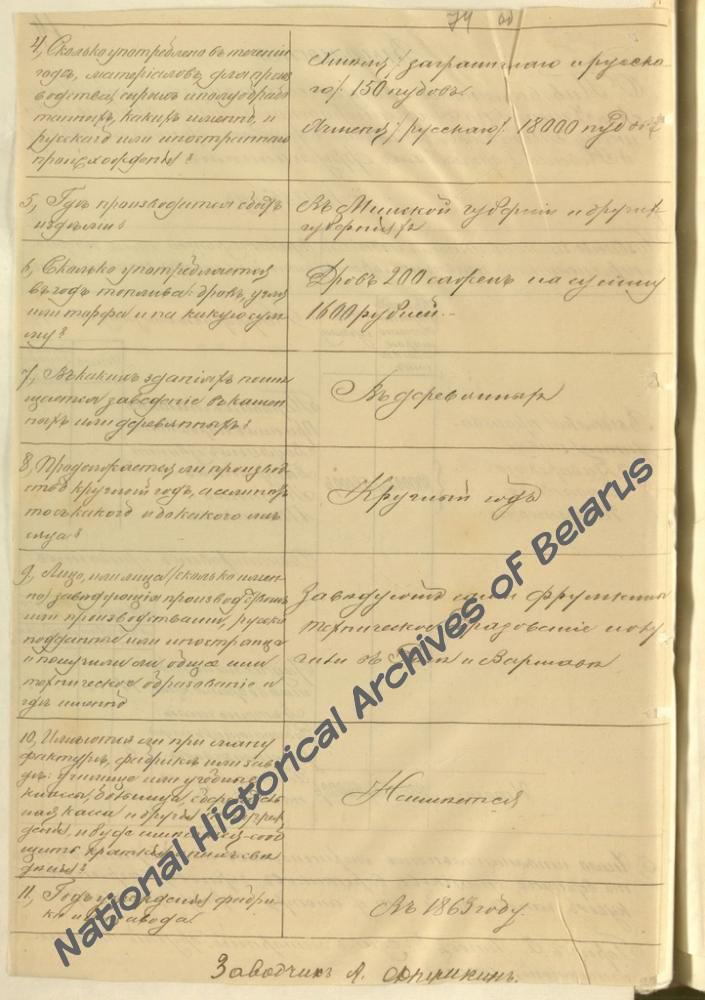 74 об
4, Сколько употреблено въ теченіи
года, матеріаловъ, для произ
водства, сырыхъ и полуобрабо
танныхъ, какихъ именно, и
русскаго или иностраннаго
происхожденія?
Хмеля / заграничнаго и русска
го / 150 пудовъ
Ячменя / русскаго / 18000 пудовъ
5, Гдѣ производится сбытъ
издѣлій
Въ Минской губерніи и другихъ
губерніяхъ
6, Сколько употребляется
въ годъ топлива: дровъ, угля
или торфа и на какую сум
му?
Дровъ 200 сажень на сумму
1600 рублей
7, Въ какихъ зданіяхъ помѣ
щается заведеніе въ камен
ныхъ или деревянныхъ?
Въ деревянныхъ
8, Продолжается ли производ
ство круглый годъ, а если нѣтъ
то съ какого и до какого мѣ
сяца?
Круглый годъ
9, Лицо, или лица /сколько имен
но/ завѣдующія производствомъ
или производствами, русскіе
подданные или иностранцы
и получили ли общее или
техническое образованіе и
гдѣ именно
Завѣдуютъ сами Фрумкины
техническое образованіе полу
чили въ и Варшавѣ
10, Имѣются ли при ману
фактурѣ, фабрикѣ или заво
дѣ: училище или учебные
классы, больница, сберегатель
ная касса и другія учрежде
денія, и буде имѣются сооб
щить краткія о нихъ свѣ
дѣнія?
Неимѣется
11, Годъ учрежденія фабри
ки или завода
Въ 1863 году.
Заводчикъ А. Фрумкинъ.
National Historical Archives of Belarus